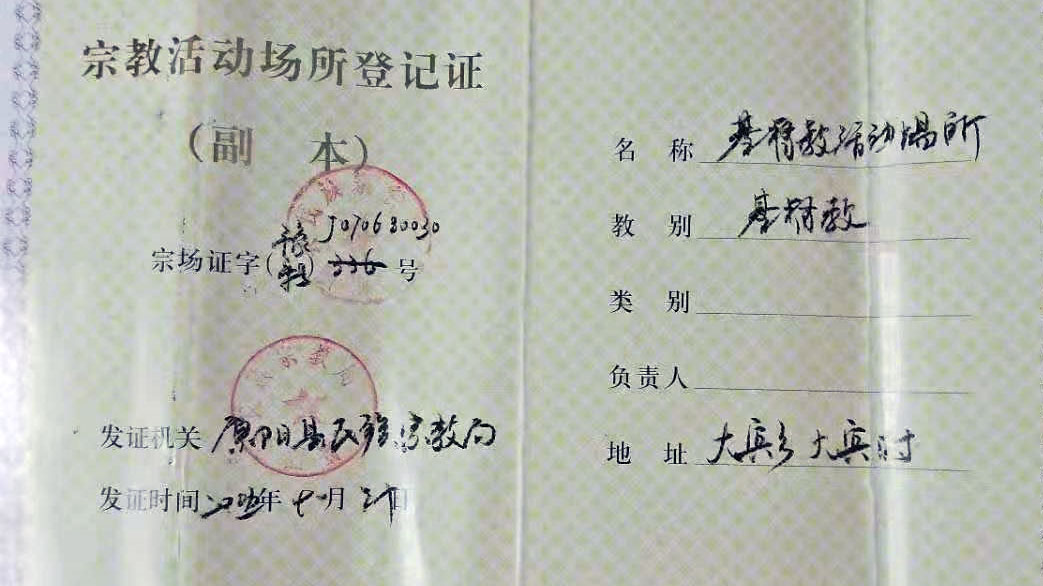 宗教活动场所登记证
(副 本)
J070630030
宗场证字(豫 ) 336 号
发证机关 原阳县民族宗教局
发证时间 年十一月 日
名 称 基督教活动场所
教 别 基督教
类 别
负责人
地 址 大宾乡大宾村